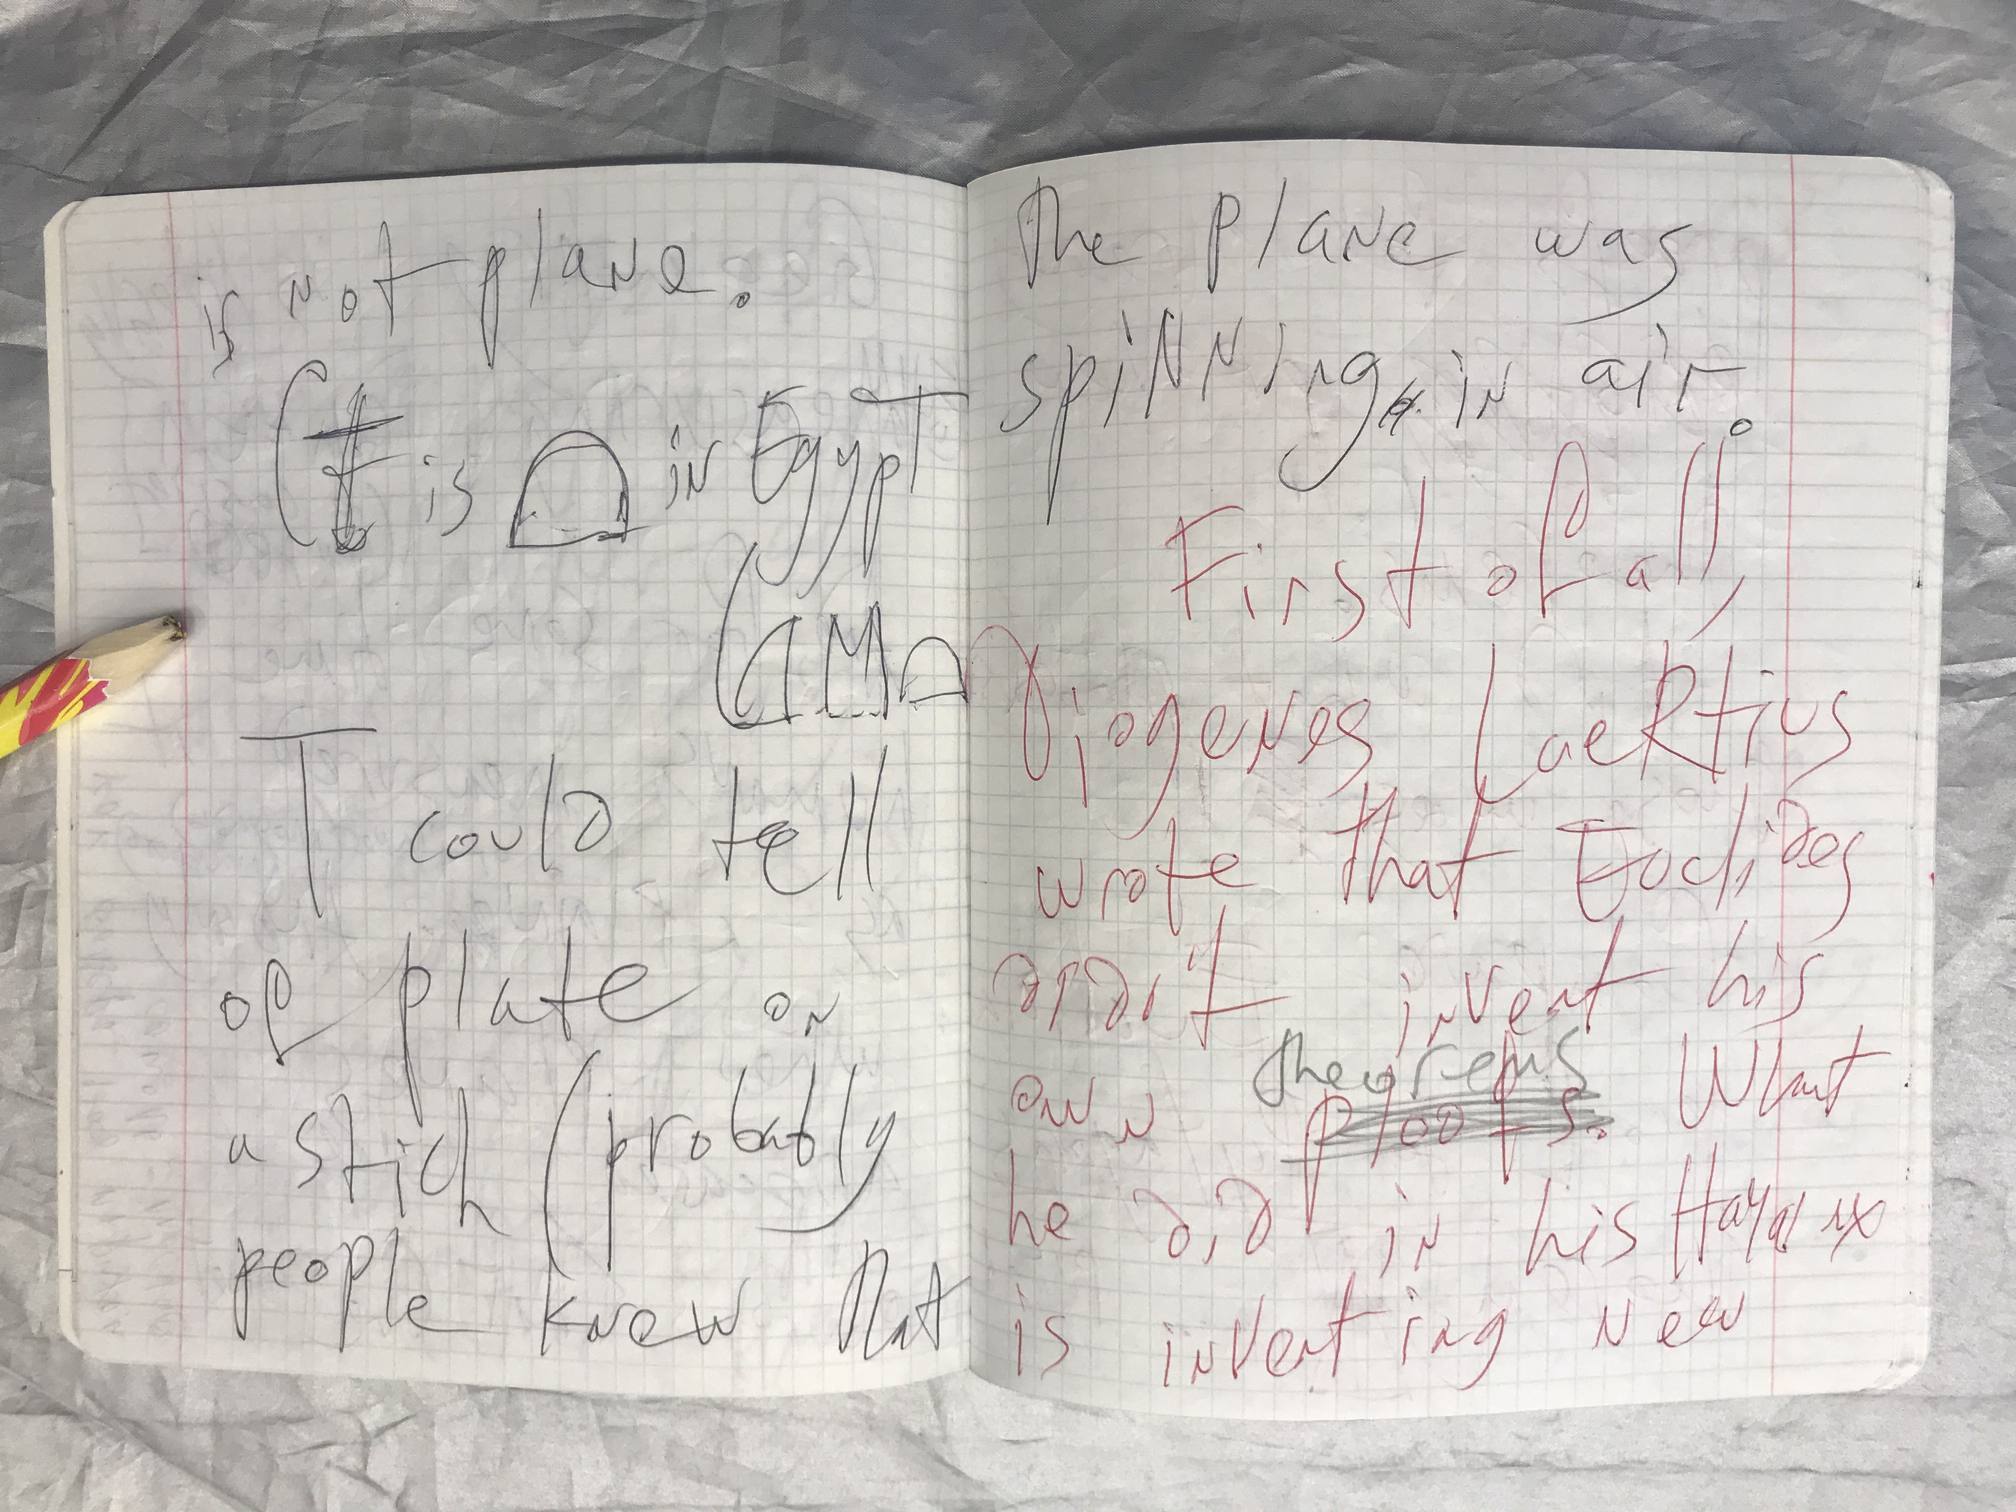 is not plane.
( t is in Egypt
(
I could tell
of plate on
a stich (probably
people knew that
The plane was
spinning in air.
First of all,
Diogenes Laertius
wrote that Euclides
did't invent his
theorems
own proofs. What
he did in his
is inventing new